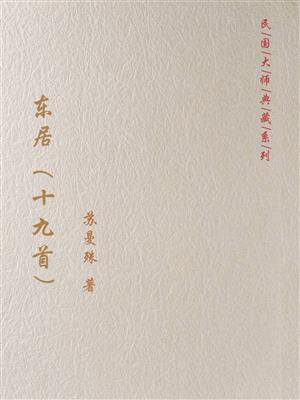 民国大师典藏系列
东居（十九首）
苏曼殊 著